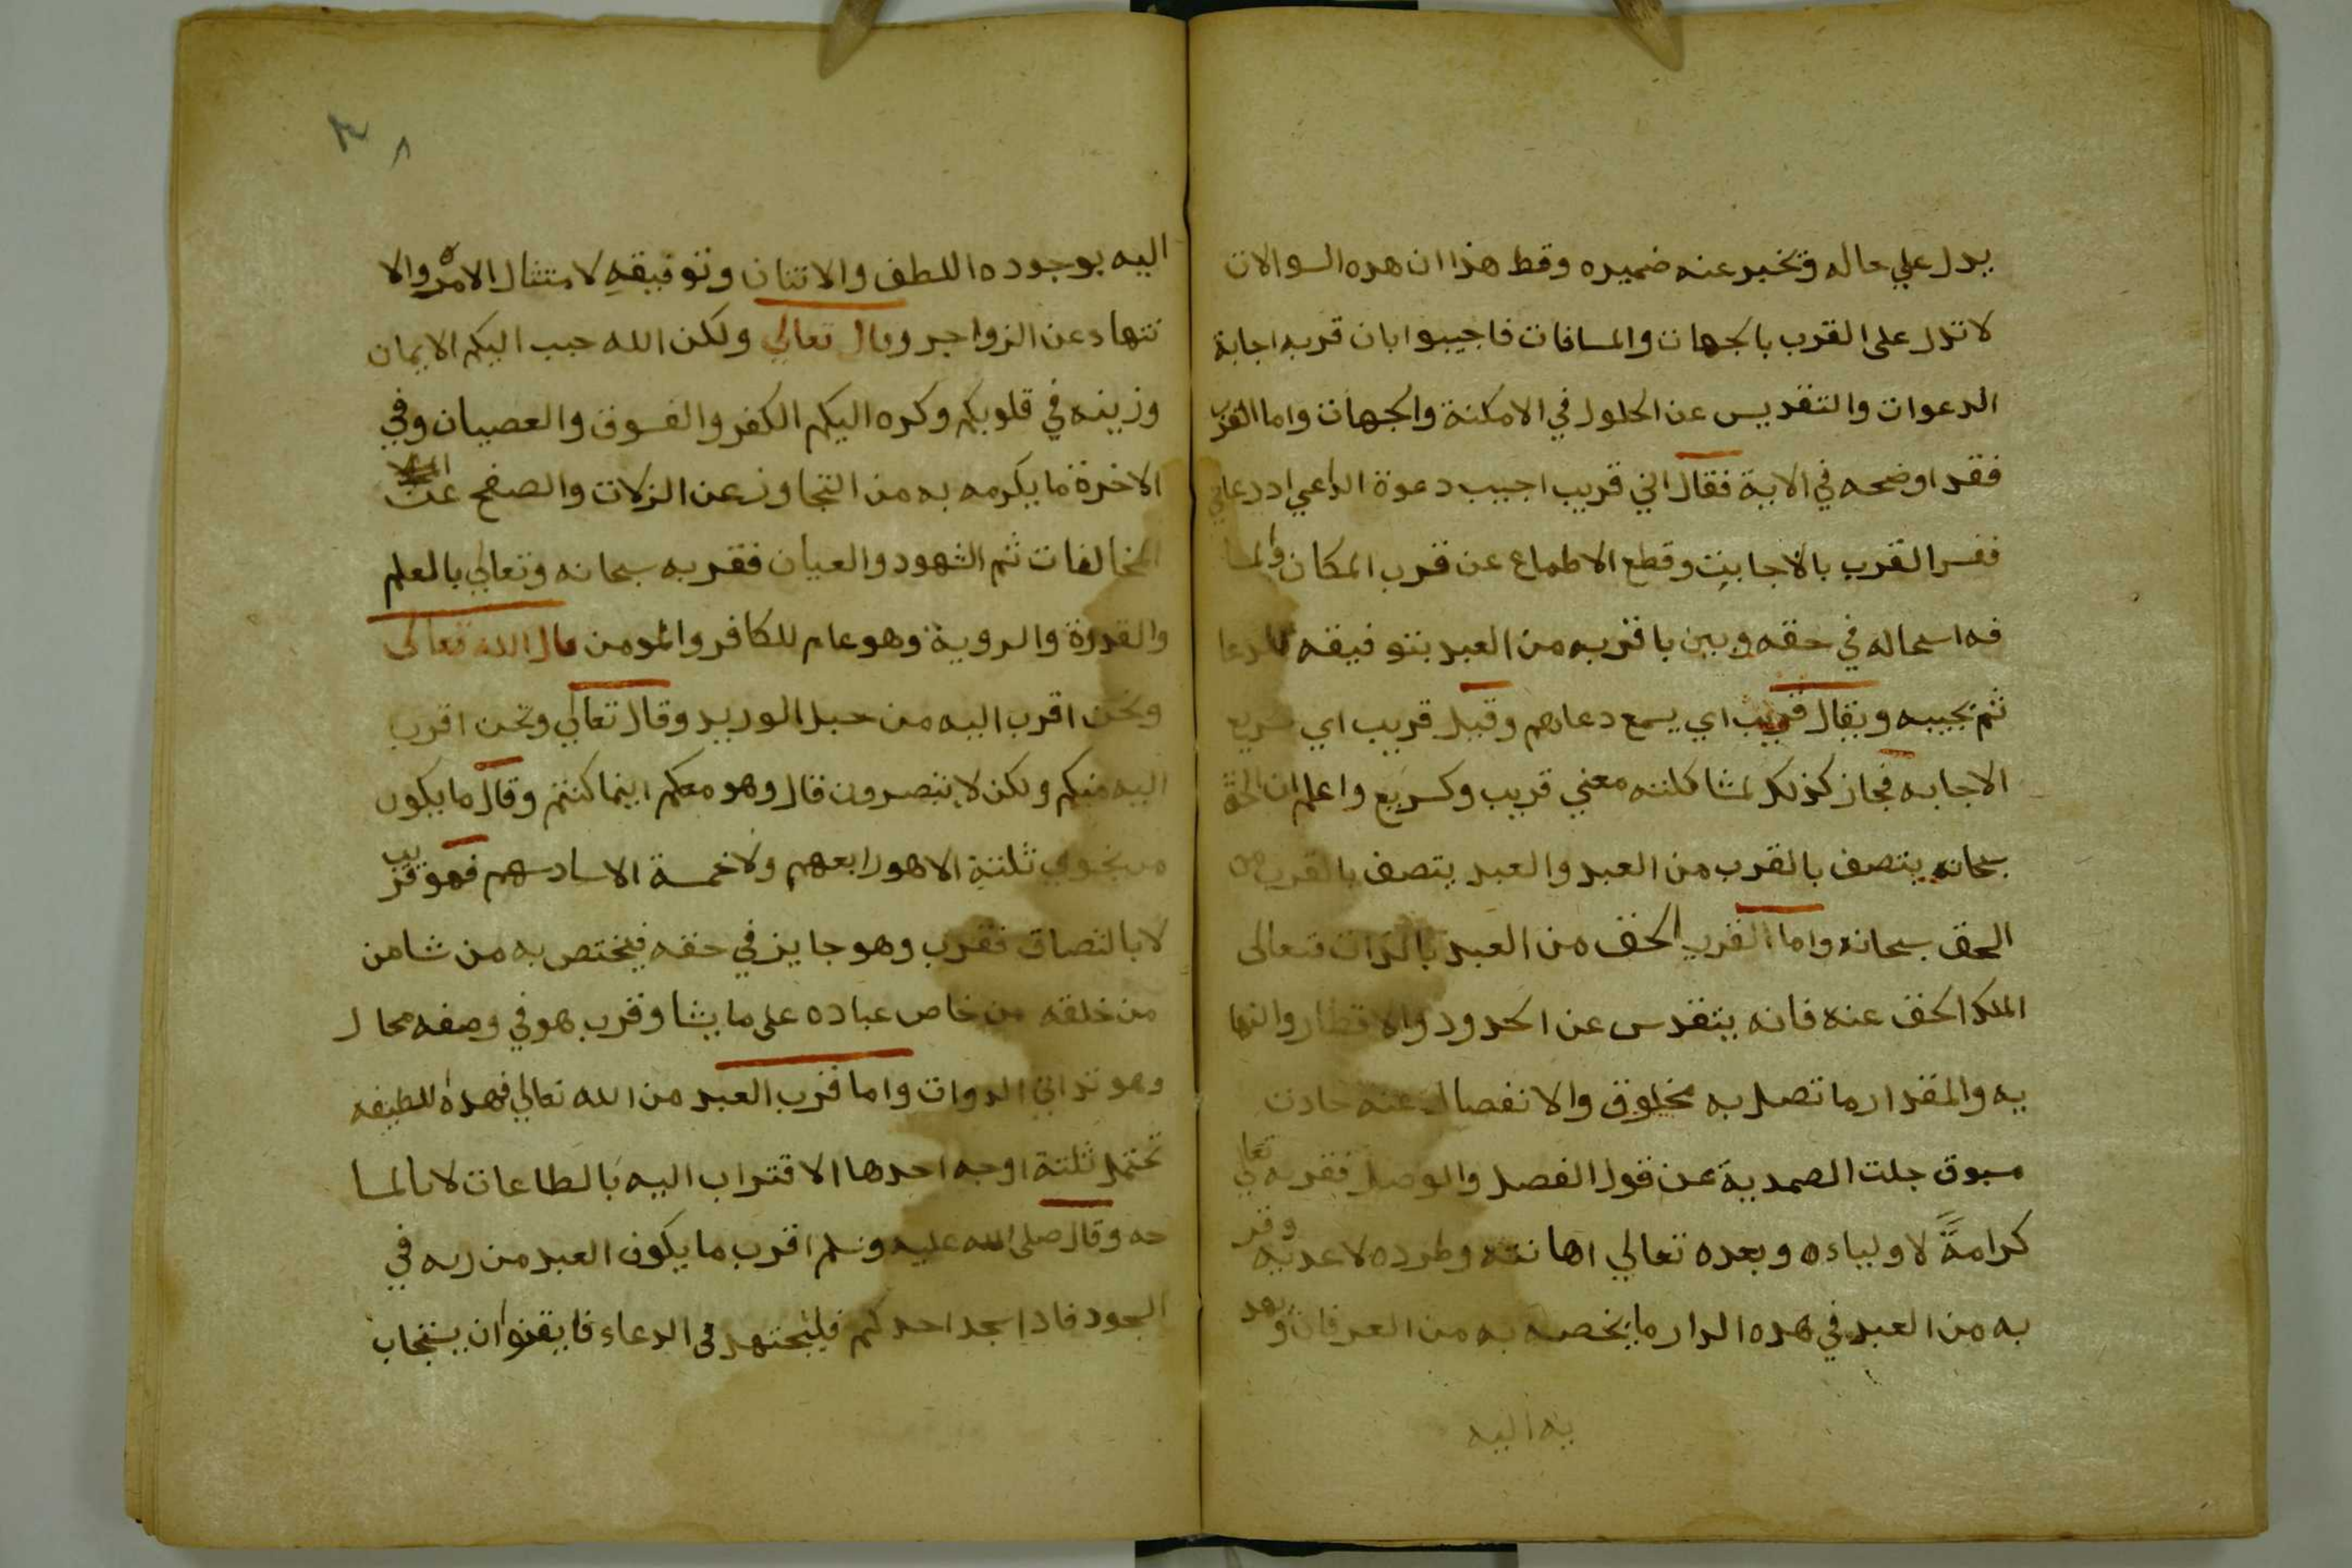 يدل علي حاله وتخبر عنه ضميره وقط هذا ان هده السوالات
لا تدل على القرب بالجهات والمسافات فاجيبوا بان قربه اجابة
الدعوات والتقديس عن الحلول في الامكنة والجهات واما القرب
فقد اوضحه في الاية فقال اني قريب اجيب دعوة الداعي اد دعاني
ففسر القرب بالاجابت وقطع الاطماع عن قرب المكان والمسا
فه اسحاله في حقه وبين باقربه من العبد بتوفيقه للدعا
ثم يجيبه ويقال قريب اي يسمع دعاهم وقيل قريب اي سريع
الاجابه فجاز كذلك لمشاكلته معني قريب وكسريع واعلم ان الحق
سبحانه يتصف بالقرب من العبد والعبد يتصف بالقرب من
الحق سبحانه واما القرب الحق من العبد بالذات فتعالى
الملك الحق عنه فانه يتقدس عن الحدود والاقطار والنها
يه والمقدار ما تصل به مخلوق والانفصال عنه حادث
مسبوق جلت الصمدية عن قول الفصل والوصل فقربه تعالي
كرامةً لاولياءه وبعده تعالي اهانته وطرده لاعديه وقر
به من العبد في هده الدار ما يخصه به من العرفان وبعد
يه اليه
٨
اليه بوجوده اللطف والاتنان وتوفيقه لامتثال الامره والا
نتهاد عن الزواجر وقال تعالي ولكن الله حبب اليكم الايمان
وزينه في قلوبكم وكره اليكم الكفر والفسوق والعصيان وفي
الاخرة ما يكرمه به من التجاوز عن الزلات والصفح عن
المخالفات ثم الشهود والعيان فقربه سبحانه وتعالي بالعلم
والقدرة والروية وهو عام للكافر والمومن قال الله تعالى
ونحن اقرب اليه من حبل الوريد وقال تعالي ونحن اقرب
اليه منكم ولكن لا تبصرون قال وهو معكم اينما كنتم وقال ما يكون
من نجوي ثلثة الا هو رابعهم ولا خمسة الا سادسهم فهو قريب
لا بالتصاق فقرب وهو جايز في حقه فيختص به من شا من
من خلقه من خاص عباده على ما يشا وقرب هو في وصفه محال
وهو تداني الدوات واما قرب العبد من الله تعالي فهده للطيفه
تحتمل ثلثة اوجه احدها الاقتراب اليه بالطاعات لا بالمسا
حه وقال صلى الله عليه وسلم اقرب ما يكون العبد من ربه في
السجود فادا سجد احدكم فليجتهد في الدعاء فايقنوا ان يستجاب